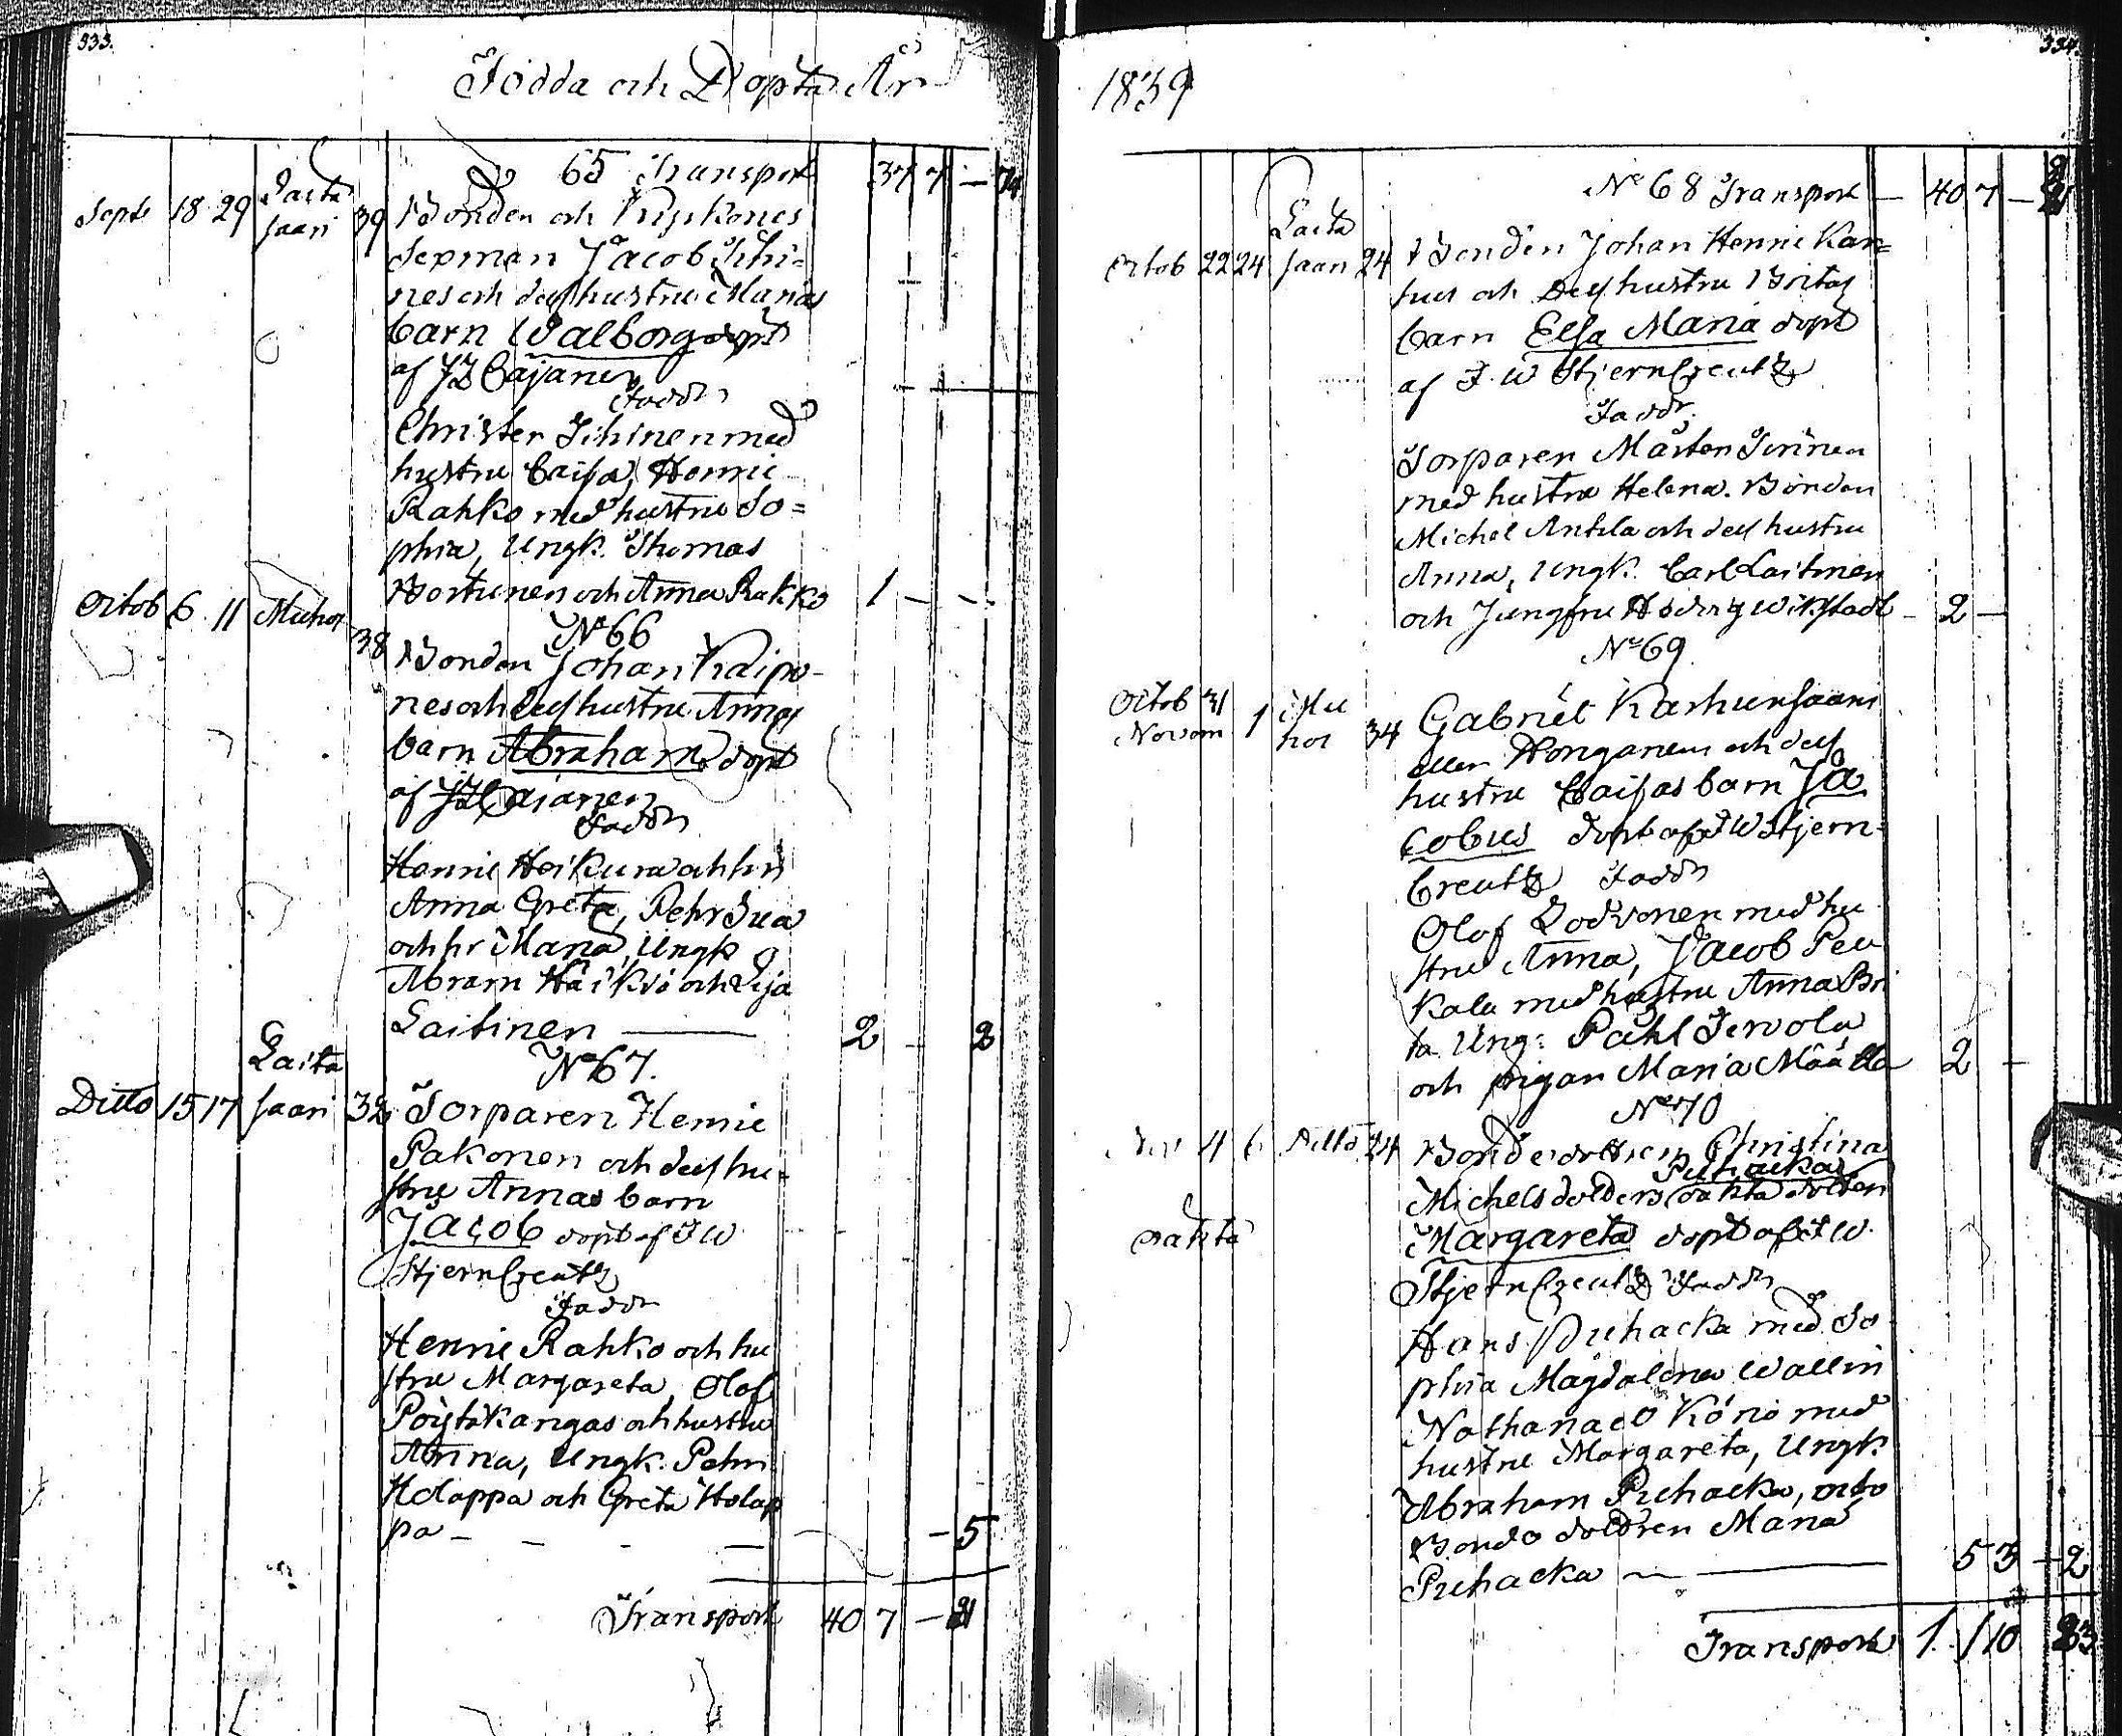 333.
Födda och Döpta År
65 Transport 37 7 — 74
Septr 18 29 Laita saari 39 Bonden och
Sexman Jacob Tihi=
nes och dess hustru Marias
barn Walborg döpt
af JZ Cajanen
Faddr
Christer Tihinen med
hustru Caisa, Henric
Rahko med hustru So=
phia, Ungk. Thomas
och Anna Rahko 1 — —
N° 66
Octob 6 11 Muhos 38 Bonden Johan Kaipo-
nes och dess hustru Annas
barn Abraham döpt
af JZ Cajanen
Faddr
Henric Heikura och hr
Anna Greta, Pehr Sua
och hr Maria, Ungk
Abram och
Laitinen — 2 — 2
N° 67.
Ditto 15 17 Laita saari 32 Torparen Henric
Pakonen och dess hu-
stru Annas barn
Jacob döpt af FW
StjernCreutz
Faddr
Henric Rahko och hu
stru Margareta, Olof
Pöytäkangas och hustru
Anna, Ungk. Pehr
Holappa och Greta Holap
pa — — — — — 5
Transport 40 7 — 81
334.
1839
N° 68 Transport — 40 7 —
Octob 22 24 Laita saari 24 Bonden Johan Henric Kar=
hus och dess hustru Britas
barn Elsa Maria döpt
af F. W StjernCreutz
Faddr.
Torparen Mårten
med hustru Helena. Bonden
Michel Anttila och dess hustru
Anna, Ungk. Carl Laitinen
och Jungfru Hedvig Wikstedt — 2 —
N° 69
Octob 31 Novem 1 Mu hos 34 Gabriel Karhunsaari
eller Honganen och dess
hustru Caisas barn Ja
cobus döpt af FW Stjern=
Creutz Faddr
Olof Lodvonen med hu
stru Anna, Jacob Peu
kala med hustru Anna Bri
ta Ung: Påhl Jervola
och pigan Maria Määtta 2 —
N° 70
4 6 Ditto 24 Bondedottren Christina
Puhacka
Michelsdotters oäkta dotter
oäkta Margareta döpt af FW.
StjernCreutz Faddr
Hans Puhacka med So
phia Magdalena Wallin
Nathanael Könö med
hustru Margareta, Ungk
Abraham Puhacka, och
Bonde dottren Maria
Puhacka — — 5 3 — 2
Transport 1 110 83